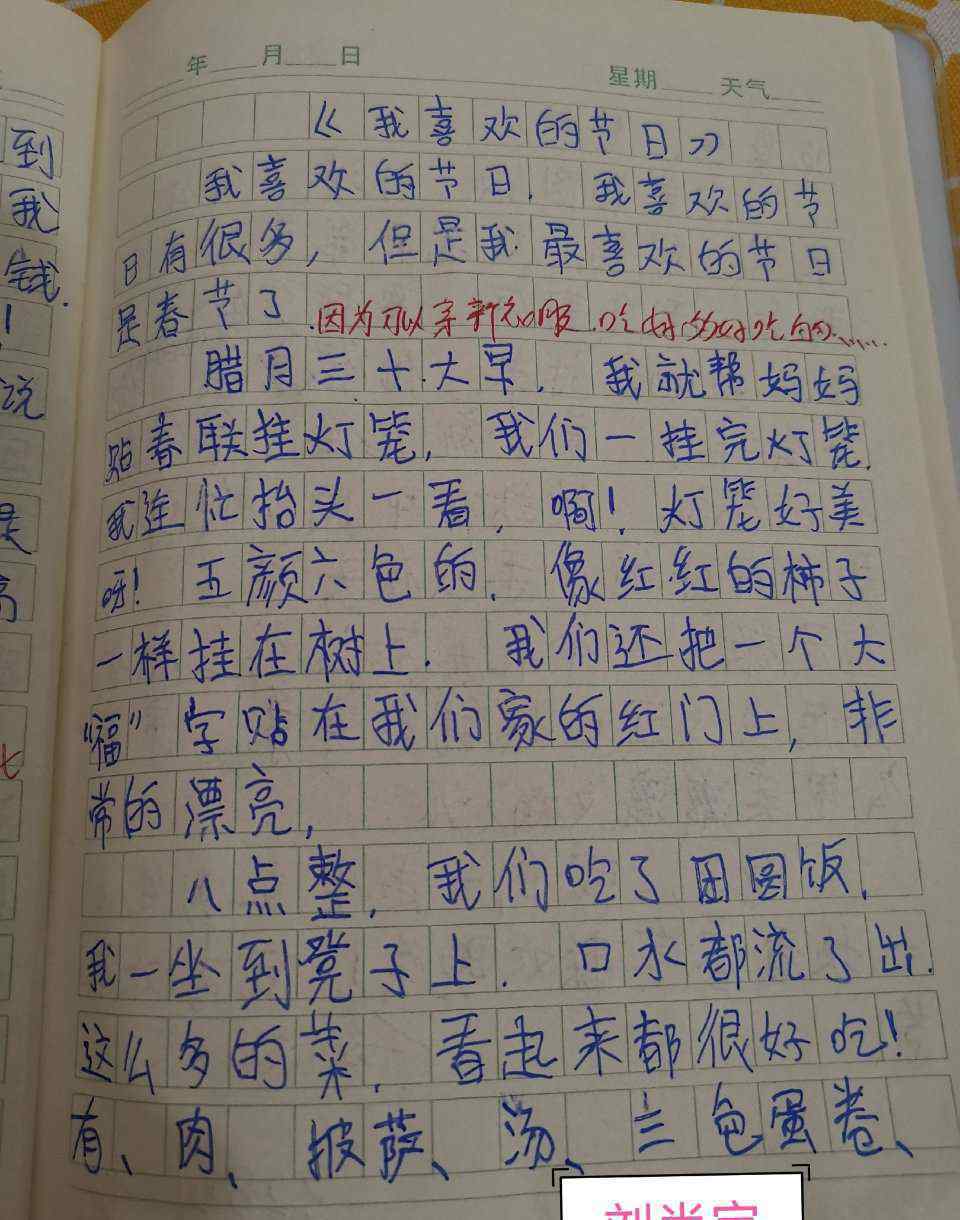 年 月 日 星期 天气
《我喜欢的节日》
我喜欢的节日. 我喜欢的节
日有很多, 但是我最喜欢的节日
是春节了.因为可以穿新衣服.吃好的好吃的......
腊月三十大早. 我就帮妈妈
贴春联挂灯笼, 我们一挂完灯笼.
我连忙抬头一看, 啊! 灯笼好美
呀! 五颜六色的. 像红红的柿子
一样挂在树上. 我们还把一个大
“福”字贴在我们家的红门上, 非
常的漂亮,
八点整, 我们吃了团圆饭.
我一坐到凳子上. 口水都流了出.
这么多的菜, 看起来都很好吃!
有、肉、披萨、汤、三色蛋卷、
到
我
钱.
!
说
是